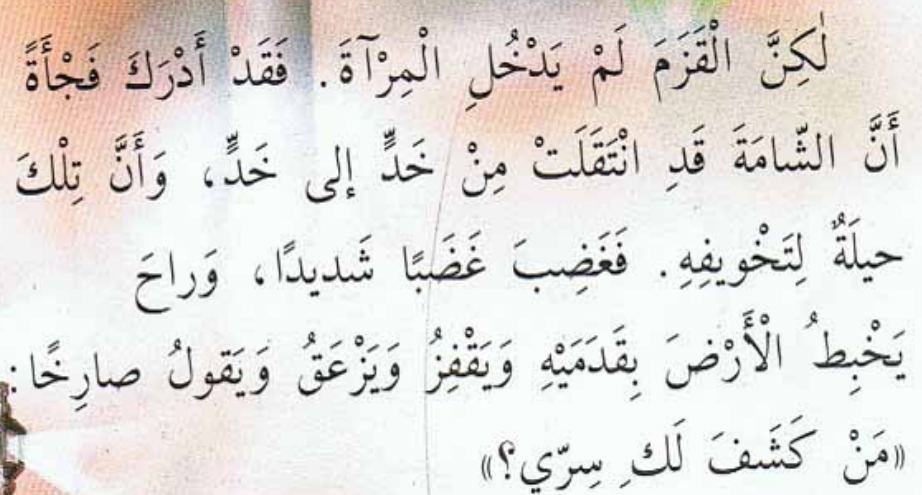 لٰكِنَّ الْقَزَمَ لَمْ يَدْخُلِ الْمِرْآةَ. فَقَدْ أَدْرَكَ فَجْأَةً
أَنَّ الشّامَةَ قَدِ انْتَقَلَتْ مِنْ خَدٍّ إلى خَدٍّ، وَأَنَّ تِلْكَ
حيلَةٌ لِتَخْويفِهِ. فَغَضِبَ غَضَبًا شَديدًا، وَراحَ
يَخْبِطُ الْأَرْضَ بِقَدَمَيْهِ وَيَقْفِزُ وَيَزْعَقُ وَيَقولُ صارِخًا:
«مَنْ كَشَفَ لَكِ سِرّي؟»